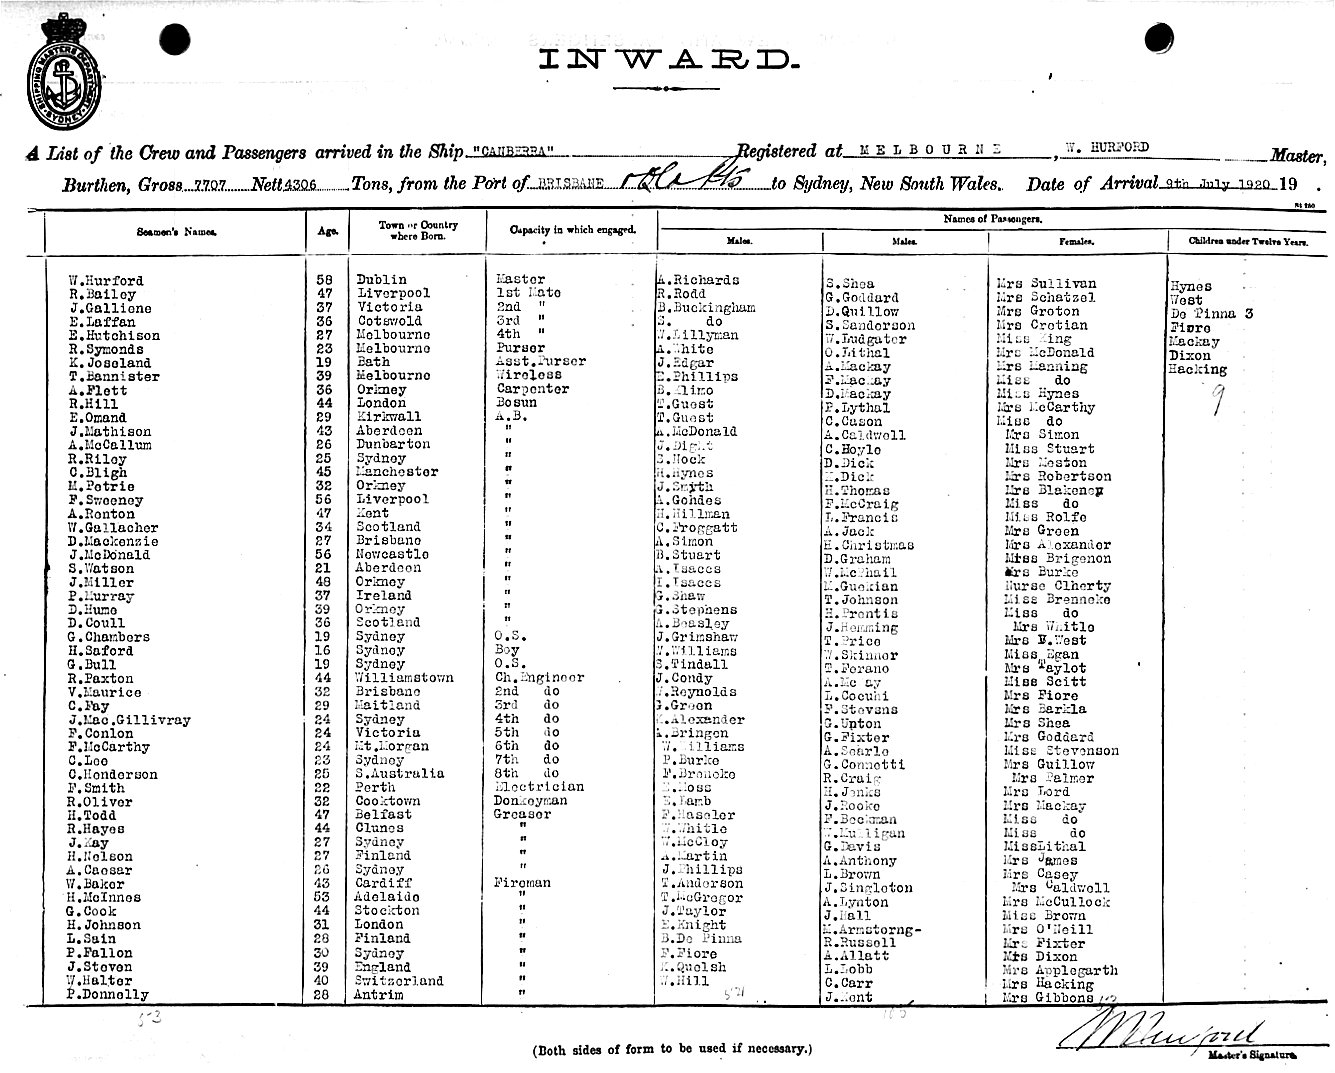 SHIPPING MASTERS DEPARTMENT SYDNEY
INWARD.
A List of the Crew and Passengers arrived in the Ship "CANBERRA" Registered at MELBOURNE, W. HURFORD Master,
Burthen, Gross 7707 Nett 4306 Tons, from the Port of BRISBANE to Sydney, New South Wales. Date of Arrival 9th July 1920 19 .
Seamen's Names. Age. Town or Country where Born. Capacity in which engaged. Names of Passengers.
Males. Males. Females. Children under Twelve Years.
W.Hurford 58 Dublin Master A.Richards S.Shea Mrs Sullivan Hynes
R.Bailey 47 Liverpool 1st Mate R.Rodd G.Goddard Mrs Schatzel West
J.Galliene 37 Victoria 2nd " B.Buckingham D.Quillow Mrs Groton De Pinna 3
E.Laffan 36 Cotswold 3rd " S. do S.Sanderson Mrs Crotian Fiore
E.Hutchison 27 Melbourne 4th " W.Lillyman W.Ludgater Miss King Mackay
R.Symonds 23 Melbourne Purser A.White O.Lithal Mrs McDonald Dixon
K.Joseland 19 Bath Asst.Purser J.Edgar A.Mackay Mrs Manning Hacking
T.Bannister 39 Melbourne Wireless E.Phillips F.Mackay Miss do
A.Flett 36 Orkney Carpenter B.Klimo D.Mackay Miss Hynes 9
R.Hill 44 London Bosun T.Guest P.Lythal Mrs McCarthy
E.Omand 29 Kirkwall A.B. T.Guest C.Cason Miss do
J.Mathison 43 Aberdeen " A.McDonald A.Caldwell Mrs Simon
A.McCallum 26 Dunbarton " J.Dight C.Hoyle Miss Stuart
R.Riley 25 Sydney " S.Hock D.Dick Mrs Weston
C.Bligh 45 Manchester " H.Hynes M.Dick Mrs Robertson
M.Petrie 32 Orkney " J.Smyth H.Thomas Mrs Blakeney
F.Sweeney 56 Liverpool " A.Gohdes F.McCraig Miss do
A.Ronton 47 Kent " H.Hillman L.Francis Miss Rolfe
W.Gallacher 34 Scotland " C.Froggatt A.Jack Mrs Green
D.Mackenzie 27 Brisbane " A.Simon E.Christmas Mrs Alexander
J.McDonald 56 Newcastle " B.Stuart D.Graham Miss Brigenon
S.Watson 21 Aberdeen " A.Isaccs W.McPhail Mrs Burke
J.Miller 48 Orkney " I.Isaccs M.Guekian Nurse Clherty
P.Murray 37 Ireland " G.Shaw T.Johnson Miss Brenneke
D.Hume 39 Orkney " G.Stephens H.Prentis Miss do
D.Coull 36 Scotland " A.Beasley J.Hemming Mrs Whitle
G.Chambers 19 Sydney O.S. J.Grimshaw T.Price Mrs E.West
H.Saford 16 Sydney Boy W.Williams W.Skinner Miss Egan
G.Bull 19 Sydney O.S. S.Tindall T.Forano Mrs Taylot
R.Paxton 44 Williamstown Ch.Engineer J.Condy Miss Scitt
V.Maurice 32 Brisbane 2nd do W.Reynolds L.Cocuhi Mrs Fiore
C.Fay 29 Maitland 3rd do G.Green F.Stevens Mrs Barkla
J.Mac.Gillivray 24 Sydney 4th do K.Alexander G.Upton Mrs Shea
F.Conlon 24 Victoria 5th do A.Bringen G.Fixter Mrs Goddard
F.McCarthy 24 Mt.Morgan 6th do W.Williams A.Searle Miss Stevenson
C.Lee 23 Sydney 7th do P.Burke G.Connotti Mrs Guillow
C.Henderson 25 S.Australia 8th do F.Breneke R.Craig Mrs Palmer
F.Smith 22 Perth Electrician E.Moss H.Jenks Mrs Lord
R.Oliver 32 Cooktown Donkeyman E.Lamb J.Rooke Mrs Mackay
H.Todd 47 Belfast Greaser F.Haseler F.Beckman Miss do
R.Hayes 44 Clunes " W.Whitle W.Mulligan Miss do
J.Kay 27 Sydney " W.McCloy G.Davis MissLithal
H.Nelson 27 Finland " A.Martin A.Anthony Mrs James
A.Caesar 26 Sydney " J.Phillips L.Brown Mrs Casey
W.Baker 43 Cardiff Fireman T.Anderson J.Singleton Mrs Caldwell
H.McInnes 53 Adelaide " T.McGregor A.Lynton Mrs McCullock
G.Cook 44 Stockton " J.Taylor J.Hall Miss Brown
H.Johnson 31 London " E.Knight M.Armstorng- Mrs O'Neill
L.Sain 28 Finland " B.De Pinna R.Russell Mrs Fixter
P.Fallon 30 Sydney " F.Fiore A.Allatt Mrs Dixon
J.Steven 39 England " K.Quelsh L.Lobb Mrs Applegarth
W.Halter 40 Switzerland " W.Hill C.Carr Mrs Hacking
P.Donnelly 28 Antrim " J.Kent Mrs Gibbons
53
(Both sides of form to be used if necessary.)
Master's Signature